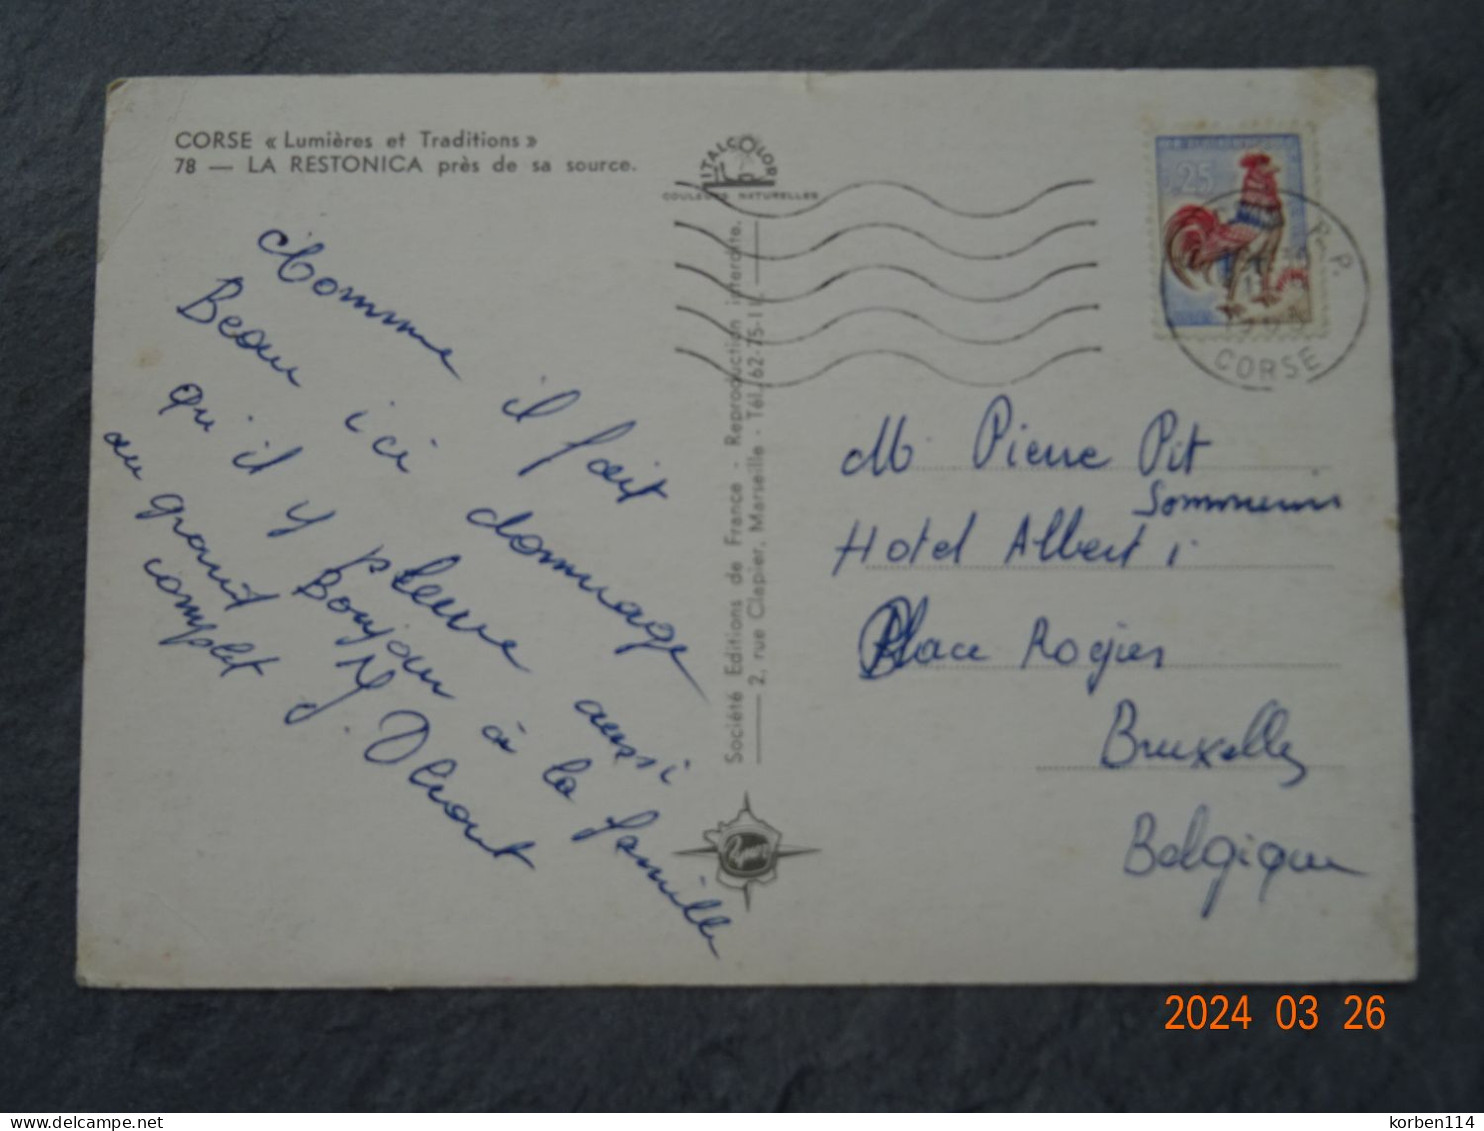 CORSE « Lumières et Traditions »
78 — LA RESTONICA près de sa source.
ITALCOLOR
COULEURS NATURELLES
Société Editions de France - Reproduction interdite.
2, rue Clapier, Marseille - Tél. 62-75-11
0,25
R. P.
CORSE
Comme il fait
Beau ici dommage
qu'il y pleuve aussi
Bonjour à la famille
au grand complet
M Pierre Pit
Sommeur
Hotel Albert i
Place Rogier
Bruxelles
Belgique
2024 03 26
korben114